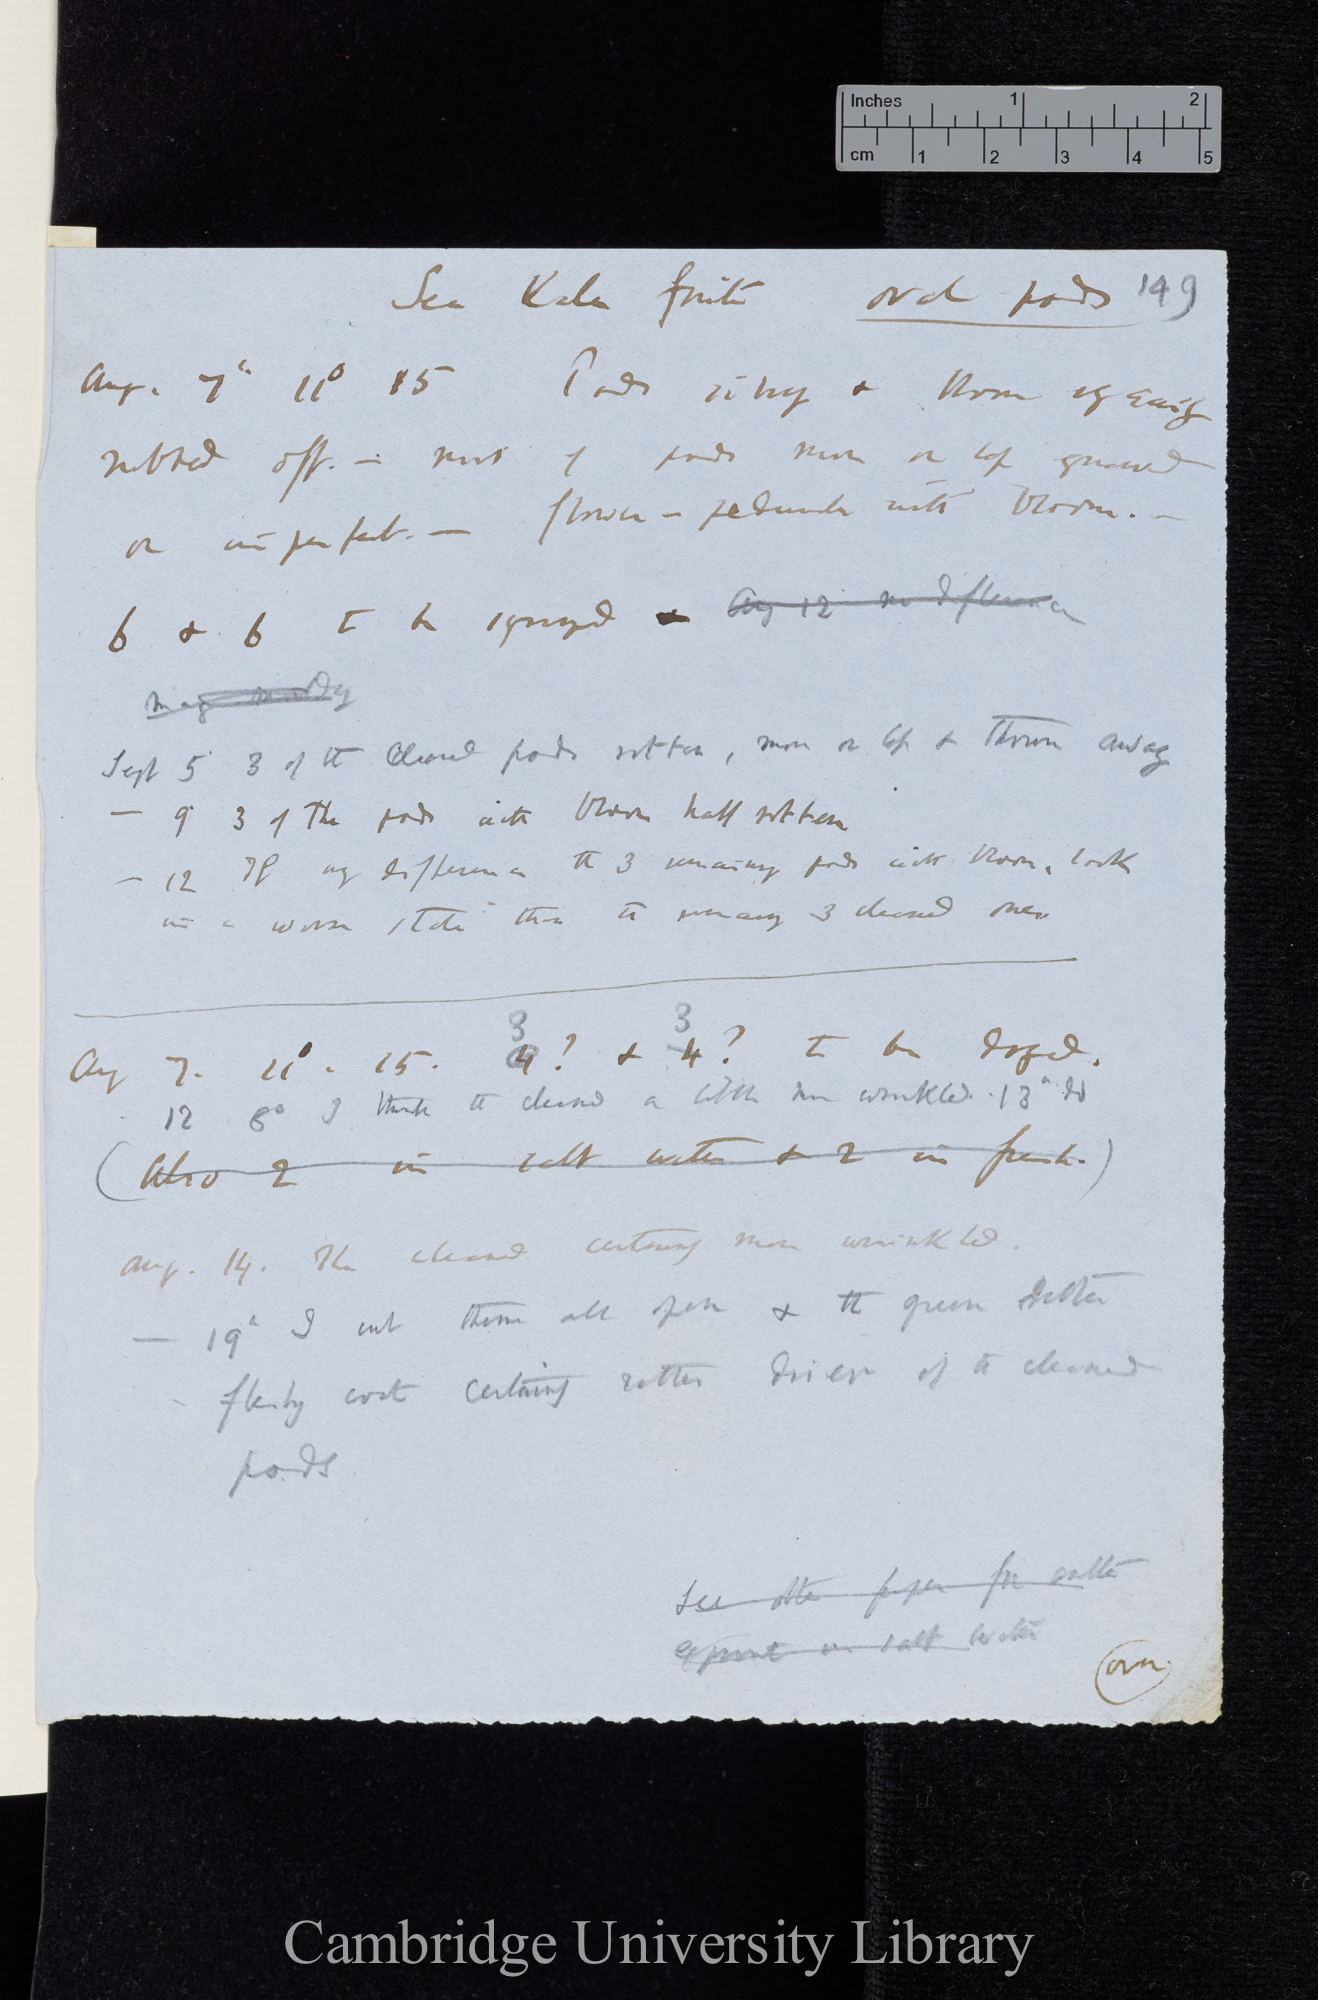 Inches 1 2
cm 1 2 3 4 5
Sea Kale fruits or pods 149
Aug. 7th 11° 15 Pods & bloom easily
rubbed off. — most of pods more or less gnawed
or imperfect. — flower-peduncle with bloom. —
6 & 6 to be syringed Aug 12 no difference
Sept 5 3 of the cleaned pods rotten, more or less & thrown away
— 9 3 of the pods with bloom half rotten
— 12 If any difference the 3 remaining pods with bloom, look
in a worse state than the remaining 3 cleaned ones
3 3
Aug 7. 11°. 15. 4? & 4? to be dryed.
12 8° I think the cleaned a little more wrinkled. 13th do
(Also 2 in salt water & 2 in fresh.)
Aug. 14. The cleaned certainly more wrinkled.
— 19th I cut them all open & the green rather
fleshy coat certainly rather drier of the cleaned
pods
See other paper for
in salt water
over
Cambridge University Library